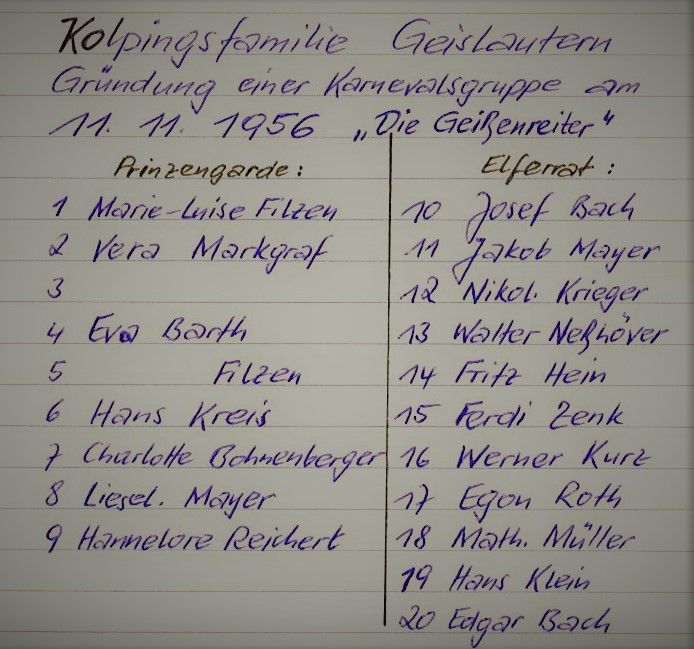 Kolpingsfamilie Geislautern
Gründung einer Karnevalsgruppe am
11. 11. 1956 „Die Geißenreiter"
Prinzengarde:
1 Marie-Luise Filzen
2 Vera Markgraf
3
4 Eva Barth
5 Filzen
6 Hans Kreis
7 Charlotte Bohnenberger
8 Liesel. Mayer
9 Hannelore Reichert
Elferrat:
10 Josef Bach
11 Jakob Mayer
12 Nikol. Krieger
13 Walter Neßhöver
14 Fritz Hein
15 Ferdi Zenk
16 Werner Kurz
17 Egon Roth
18 Math. Müller
19 Hans Klein
20 Edgar Bach